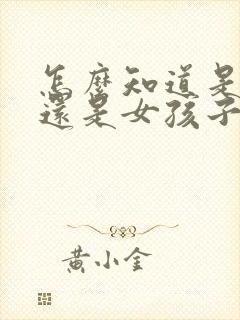 怎麼知道是
還是女孩子
黃小金